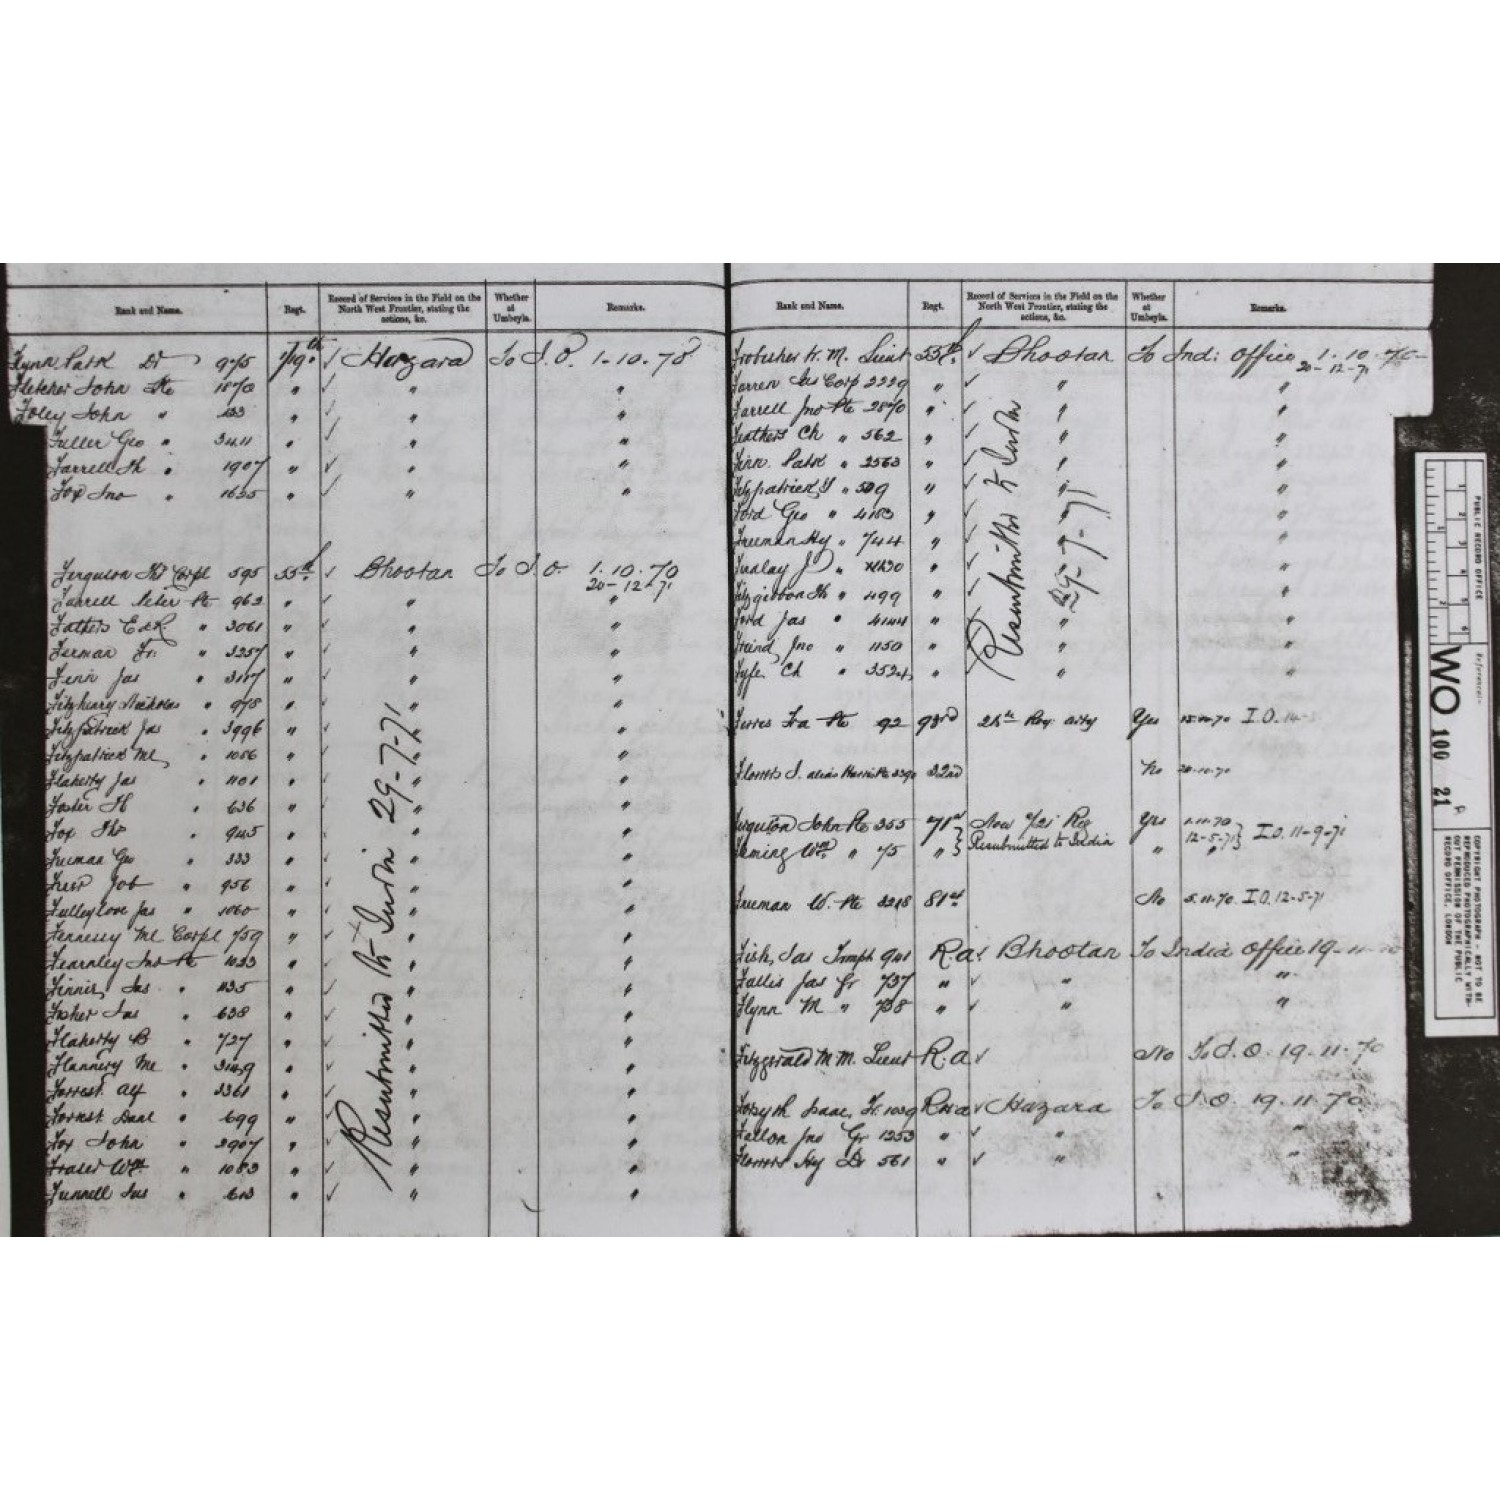 Rank and Name. Regt. Record of Services in the Field on the North West Frontier, stating the actions, &c. Whether at Umbeyla. Remarks.
Flynn Patk Dr 975 19th ✓ Hazara To I.O. 1-10-70
Fletcher John Pte 1870 " " "
Foley John " 133 " ✓ " "
Fuller Geo " 3411 " ✓ " "
Farrell Th " 1907 " ✓ " "
Fox Jno " 1635 " ✓ " "
Ferguson Thos Corpl 595 55th ✓ Bhootan To I.O. 1.10.70
20-12-71
Farrell Peter Pte 962 " " "
Fathers Edk " 3061 " " "
Firman Fr. " 3257 " " "
Fenn Jas " 3117 " " "
Fitzhenry Nicholas " 975 " " "
Fitzpatrick Jas " 3996 " " "
Fitzpatrick Ml " 1056 " " "
Flaherty Jas " 1101 " " "
Foster Th " 636 " " "
Fox Thos " 945 " " "
Freeman Geo " 333 " " "
Job " 956 " " "
Fulleylove Jas " 1060 " " "
Fennessy Ml Corpl 759 " " "
Fearnley Jno Pte 1033 " " "
Finnis Jas " 1135 " " "
Fisher Jas " 638 " " "
Flaherty B " 727 " " "
Flannery Ml " 3149 " " "
Forrest Alf " 3361 " " "
Forrest Danl " 699 " " "
Fox John " 2907 " " "
Fraser Wm " 1083 " " "
Funnell Jas " 613 " ✓ " "
Resubmitted to India 29-7-71
Rank and Name. Regt. Record of Services in the Field on the North West Frontier, stating the actions, &c. Whether at Umbeyla. Remarks.
Frobisher W. M. Lieut 55th ✓ Bhootan To Ind: Office 1.10.70
20-12-71
Farren Jas Corp 2229 " ✓ " "
Farrell Jno Pte 2870 " ✓ " "
Feathers Ch " 562 " ✓ " "
Finn Patk " 2563 " ✓ " "
Fitzpatrick " 509 " ✓ " "
Ford Geo " 4183 " ✓ " "
Freeman Hy " 744 " ✓ " "
Finalay J " " ✓ " "
Fitzgibbon Th " 499 " ✓ " "
Ford Jas " 4144 " ✓ " "
Friend Jno " 1150 " " "
Fyfe Ch " 3524 " " "
Resubmitted to India 29-7-71
Ferres Pte 92 93rd Yes I.O.
Florris J. alias Harris Pte 3390 32nd No 20-10-70
Ferguson John Pte 355 71st Now 72d Reg Yes 1.11.70
Fleming Wm " 75 " Resubmitted to India " 12-5-71 I.O. 11-9-71
Freeman W. Pte 3218 81st No 5.11.70 I.O. 12-5-71
Fish, Jas Trmptr 941 R.a. Bhootan To India Office 19-11-70
Fallis Jas Gr 737 " ✓ " "
Flynn M " 738 " ✓ " "
Fitzgerald M. M. Lieut R.a ✓ No To I.O. 19.11.70
Forsyth Isaac, Fr. 1039 RHa ✓ Hazara To I.O. 19.11.70
Fallon Jno Gr 1253 " ✓ " "
Flowers Hy Dr 561 " ✓ " "
PUBLIC RECORD OFFICE
Reference:-
WO 100 21
COPYRIGHT PHOTOGRAPH - NOT TO BE REPRODUCED PHOTOGRAPHICALLY WITHOUT PERMISSION OF THE PUBLIC RECORD OFFICE, LONDON